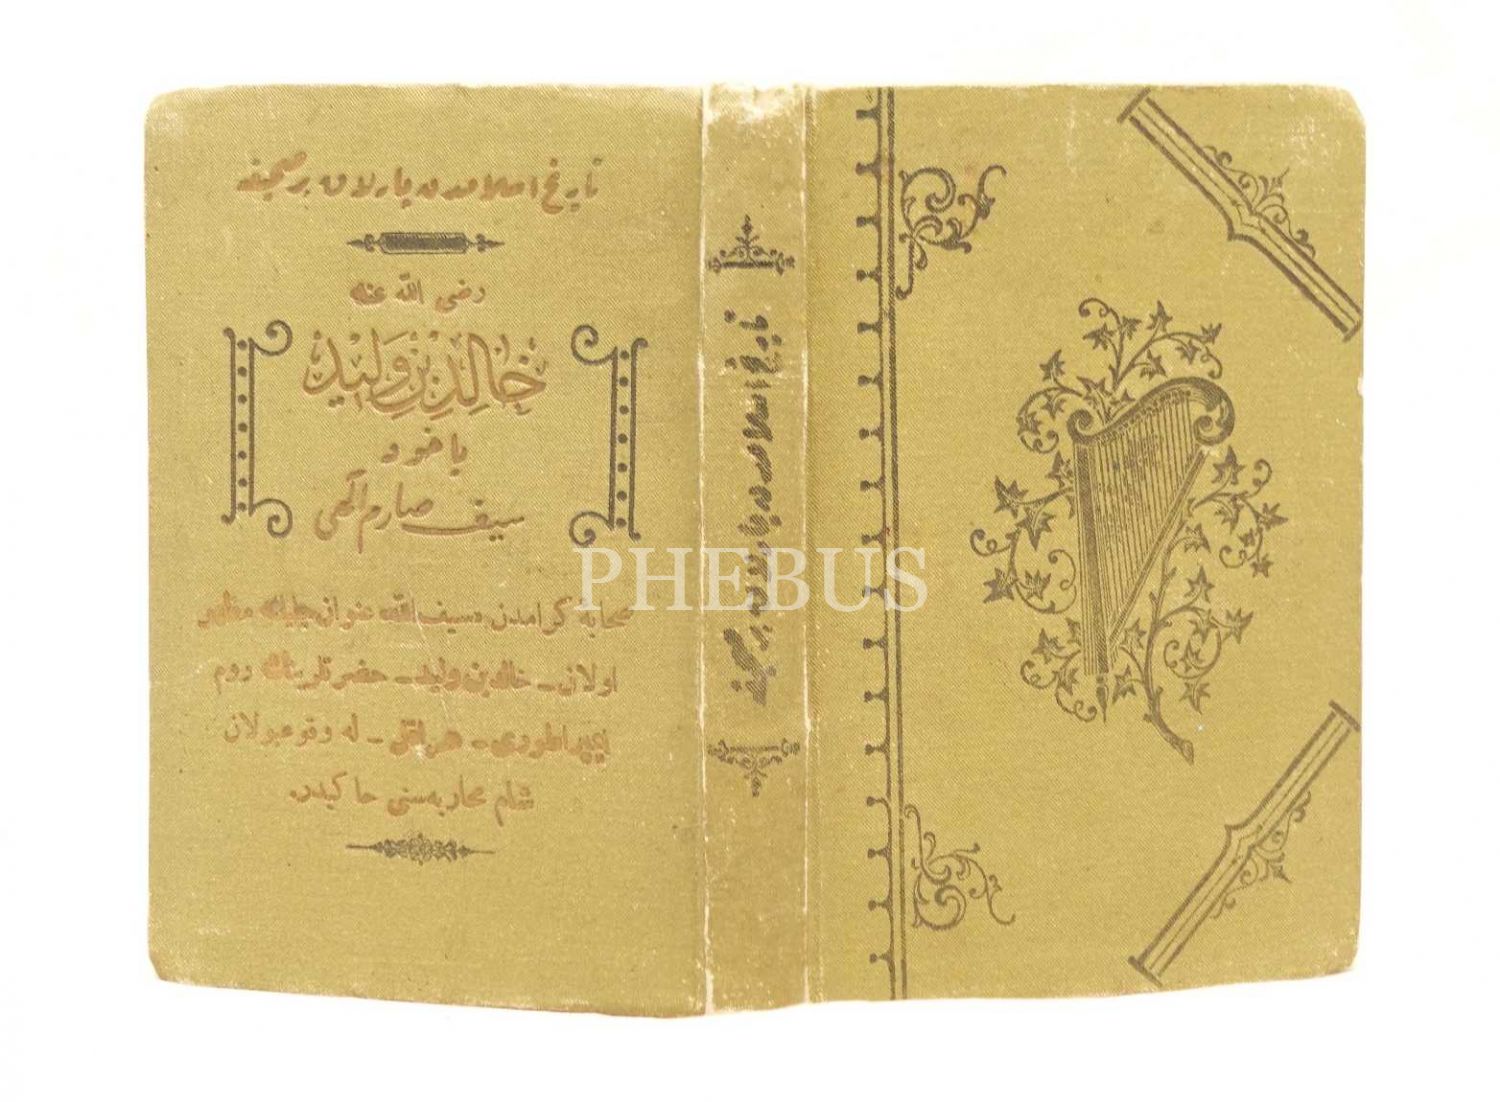 تاريخ اسلامدن پارلاق بر صحيفه
رضی الله عنه
خَالِدْ بِنْ وَلِيدْ
ياخود
سيف صارم الهی
صحابهٔ كرامدن «سيف الله عنوان جليلنه مظهر
اولان ـ خالد بن وليد ـ حضرتلرينك روم
ايمپراطوری ـ هرقل ـ له وقوعبولان
شام محاربه‌سنی حاكيدر.
تاريخ اسلامدن پارلاق بر صحيفه
PHEBUS